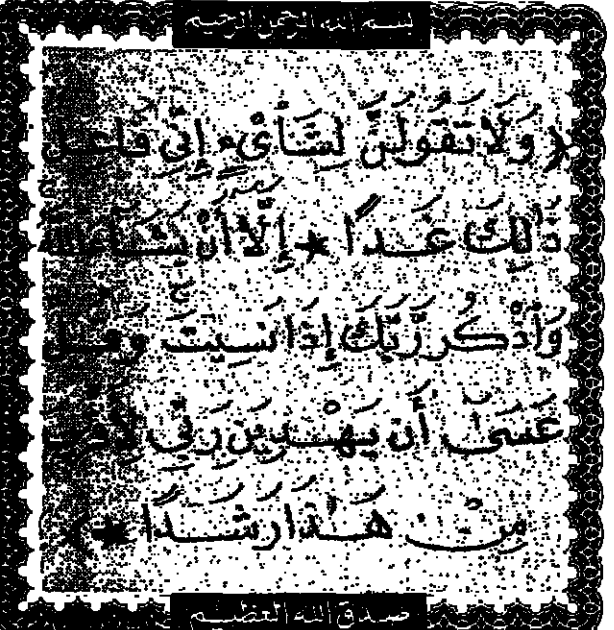 بسم الله الرحمن الرحيم
﴿ وَلَا تَقُولَنَّ لِشَاْىْءٍ إِنِّى فَاعِلٌ
ذَٰلِكَ غَدًا ★ إِلَّا أَنْ يَشَاءَ اللَّهُ
وَاذْكُر رَّبَّكَ إِذَا نَسِيتَ وَقُلْ
عَسَىٰ أَن يَهْدِيَنِ رَبِّى لِأَقْرَبَ
مِنْ هَٰذَا رَشَدًا ★ ﴾
صدق الله العظيم